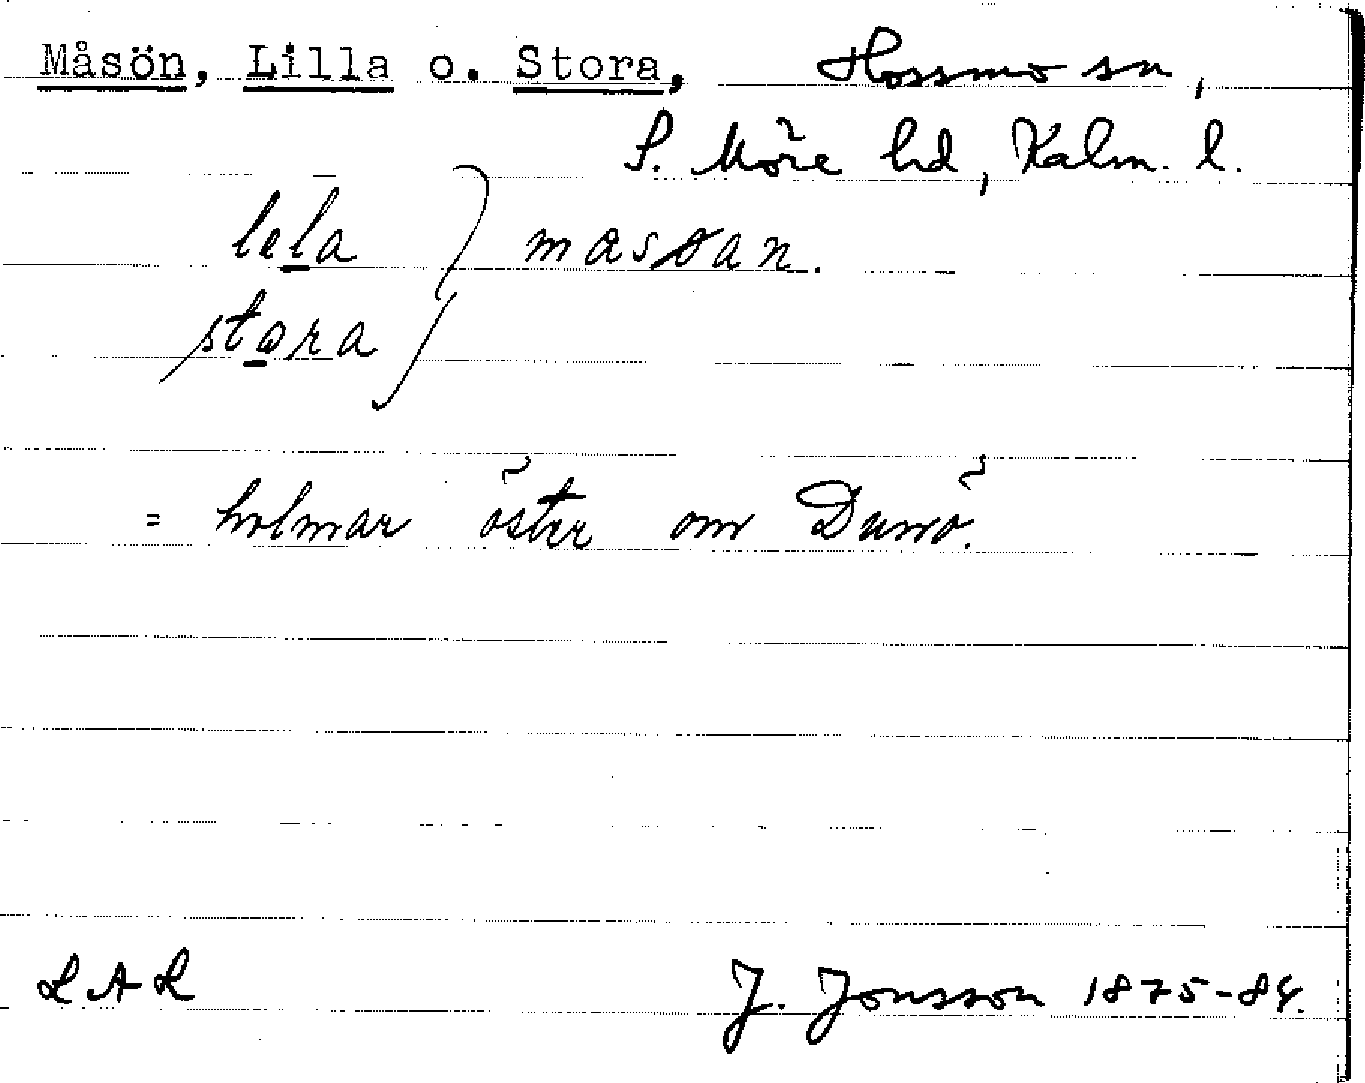 Måsön, Lilla o. Stora, Hossmo sn,
S. Möre hd, Kalm. l.
lela } masøan.
stora
= holmar öster om Dunö.
LAL J. Jonsson 1875-84.